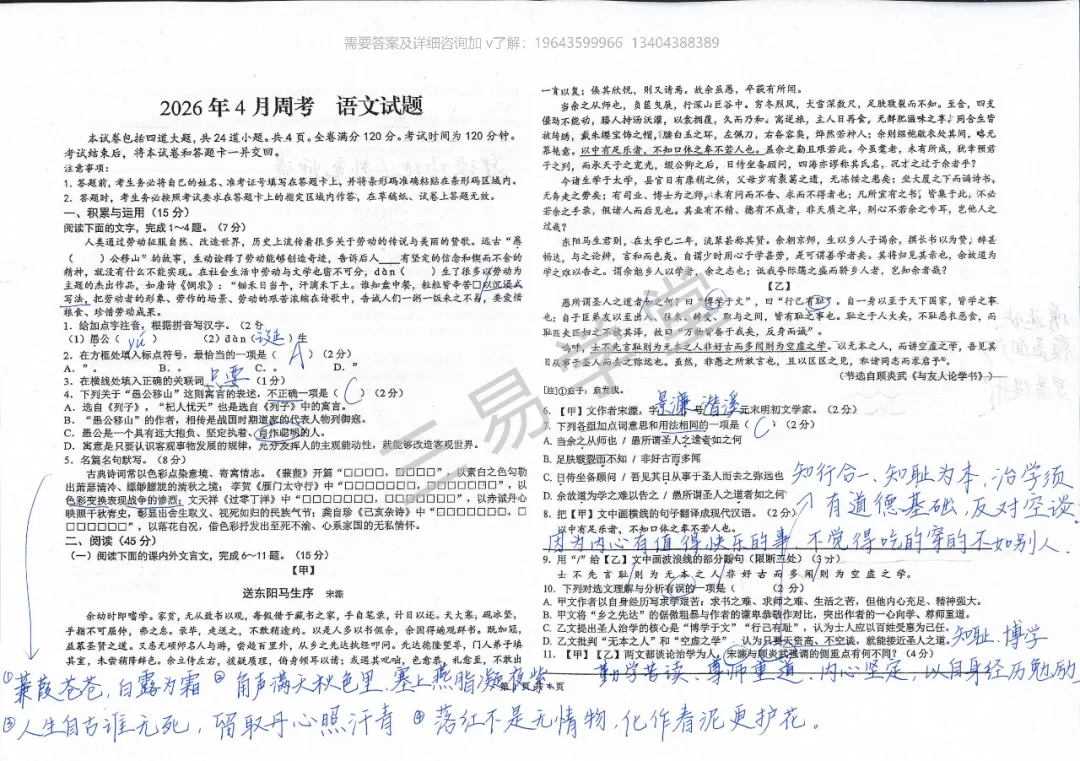 需要答案及详细咨询加 v了解：19643599966 13404388389
2026 年 4 月周考 语文试题
本试卷包括四道大题，共 24 道小题。共 4 页。全卷满分 120 分。考试时间为 120 分钟。
考试结束后，将本试卷和答题卡一并交回。
注意事项：
1. 答题前，考生务必将自己的姓名、准考证号填写在答题卡上，并将条形码准确粘贴在条形码区域内。
2. 答题时，考生务必按照考试要求在答题卡上的指定区域内作答，在草稿纸、试卷上答题无效。
一、积累与运用（15 分）
阅读下面的文字，完成 1～4 题。（7 分）
人类通过劳动征服自然、改造世界，历史上流传着很多关于劳动的传说与美丽的赞歌。远古“愚
（ ）公移山”的故事，生动诠释了劳动能够创造奇迹，告诉后人___有坚定的信念和锲而不舍的
精神，就没有什么不能实现。在社会生活中劳动与文学也密不可分，dàn（ ）生了很多以劳动为
主题的杰出作品。如唐诗《悯农》：“锄禾日当午，汗滴禾下土。谁知盘中餐，粒粒皆辛苦□以沉浸式
写法，把劳动者的形象、劳作的场景、劳动的艰苦浓缩在诗歌中，告诫人们一粥一饭来之不易，要爱惜
粮食、珍惜劳动成果。
1. 给加点字注音，根据拼音写汉字。（2 分）
（1）愚公（ yú ） （2）dàn（诞）生
2. 在方框处填入标点符号，最恰当的一项是（ A ）（2 分）
A. ”。 B. 。” C. 。 D. ”
3. 在横线处填入正确的关联词 只要 （1 分）
4. 下列关于“愚公移山”这则寓言的表述，不正确一项是（ C ）（2 分）
A. 选自《列子》，“杞人忧天”也是选自《列子》中的寓言。
B. “愚公移山”的作者，相传是战国时期道家的代表人物列御寇。
C. 愚公是一个具有远大抱负、坚定执着、自作聪明的人。
D. 寓意是只要认识客观事物发展的规律，充分发挥人的主观能动性，就能够改造客观世界。
5. 名篇名句默写。（8 分）
古典诗词常以色彩点染意境、寄寓情志。《蒹葭》开篇“□□□□，□□□□”，以素白之色勾勒
出萧瑟清冷、缥缈朦胧的清秋之境；李贺《雁门太守行》中“□□□□□□□，□□□□□□□”，以
色彩变换表现战争的惨烈；文天祥《过零丁洋》中“□□□□□□□，□□□□□□□”，以赤诚丹心
映照千秋青史，彰显出舍生取义、视死如归的民族气节；龚自珍《己亥杂诗》中“□□□□□□□，□
□□□□□□”，以落花自况，借色彩抒发出至死不渝、心系家国的无私情怀。
二、阅读（45 分）
（一）阅读下面的课内外文言文，完成 6～11 题。（15 分）
【甲】
送东阳马生序 宋濂
余幼时即嗜学。家贫，无从致书以观，每假借于藏书之家，手自笔录，计日以还。天大寒，砚冰坚，
手指不可屈伸，弗之怠。录毕，走送之，不敢稍逾约。以是人多以书假余，余因得遍观群书。既加冠，
益慕圣贤之道。又患无硕师名人与游，尝趋百里外，从乡之先达执经叩问。先达德隆望尊，门人弟子填
其室，未尝稍降辞色。余立侍左右，援疑质理，俯身倾耳以请；或遇其叱咄，色愈恭，礼愈至，不敢出
①蒹葭苍苍，白露为霜 ②角声满天秋色里，塞上燕脂凝夜紫
③人生自古谁无死，留取丹心照汗青 ④落红不是无情物，化作春泥更护花。
一言以复；俟其欣悦，则又请焉。故余虽愚，卒获有所闻。
当余之从师也，负箧曳屣，行深山巨谷中。穷冬烈风，大雪深数尺，足肤皲裂而不知。至舍，四支
僵劲不能动，媵人持汤沃灌，以衾拥覆，久而乃和。寓逆旅，主人日再食，无鲜肥滋味之享。同舍生皆
被绮绣，戴朱缨宝饰之帽，腰白玉之环，左佩刀，右备容臭，烨然若神人；余则缊袍敝衣处其间，略无
慕艳意。以中有足乐者，不知口体之奉不若人也。盖余之勤且艰若此。今虽耄老，未有所成，犹幸预君
子之列，而承天子之宠光，缀公卿之后，日侍坐备顾问，四海亦谬称其氏名，况才之过于余者乎？
今诸生学于太学，县官日有廪稍之供，父母岁有裘葛之遗，无冻馁之患矣；坐大厦之下而诵诗书，
无奔走之劳矣；有司业、博士为之师，未有问而不告、求而不得者也；凡所宜有之书，皆集于此，不必
若余之手录，假诸人而后见也。其业有不精、德有不成者，非天质之卑，则心不若余之专耳，岂他人之
过哉？
东阳马生君则，在太学已二年，流辈甚称其贤。余朝京师，生以乡人子谒余，撰长书以为贽；辞甚
畅达，与之论辨，言和而色夷。自谓少时用心于学甚劳，是可谓善学者矣。其将归见其亲也，余故道为
学之难以告之。谓余勉乡人以学者，余之志也；诋我夸际遇之盛而骄乡人者，岂知余者哉？
【乙】
愚所谓圣人之道者如之何？曰“博学于文”，曰“行己有耻”。自一身以至于天下国家，皆学之事
也；自子臣弟友以至出入、往来、辞受、取与之间，皆有耻之事也。耻之于人大矣，不耻恶衣恶食，而
耻匹夫匹妇之不被其泽，故曰“万物皆备于我矣，反身而诚”。
呜呼，士不先言耻则为无本之人非好古而多闻则为空虚之学。以无本之人，而讲空虚之学，吾见其
日从事于圣人而去之弥远也。虽然，非愚之所敢言也，且以区区之见，私诸同志而求启予。
（节选自顾炎武《与友人论学书》）
[注]①启予，启发我。
6. 【甲】文作者宋濂，字 景濂 号 潜溪 元末明初文学家。（2 分）
7. 下列各组加点词意思和用法相同的一项是（ C ）（2 分）
A. 当余之从师也 / 愚所谓圣人之道者如之何
B. 足肤皲裂而不知 / 非好古而多闻
C. 日侍坐备顾问 / 吾见其日从事于圣人而去之弥远也
D. 余故道为学之难以告之 / 愚所谓圣人之道者如之何
8. 把【甲】文中画横线的句子翻译成现代汉语。（2 分）
以中有足乐者，不知口体之奉不若人也。
因为内心有值得快乐的事，不觉得吃的穿的不如别人.
知行合一、知耻为本，治学须
有道德基础，反对空谈.
9. 用“/”给【乙】文中画波浪线的部分断句（限断三处）（3 分）
士 不 先 言 耻 则 为 无 本 之 人 非 好 古 而 多 闻 则 为 空 虚 之 学。
10. 下列对选文理解与分析有误的一项是（ ）（2 分）
A. 甲文作者以自身经历写求学艰苦：求书之难、求师之难、生活之苦，但他内心充足、精神强大。
B. 甲文将“乡之先达”的倨傲粗暴与作者的谦卑恭敬作对比，突出作者的一心向学、尊师重道。
C. 乙文提出圣人治学的核心是“博学于文”“行己有耻”，认为士人应以百姓受惠为己任。
D. 乙文批判“无本之人”和“空虚之学”，认为只要天资高、不空谈，就能接近圣人之道。
11. 【甲】【乙】两文都谈论治学为人，宋濂与顾炎武强调的侧重点有何不同？（4 分）
知耻、博学
勤学苦读、尊师重道、内心坚定，以自身经历勉励
三易学堂